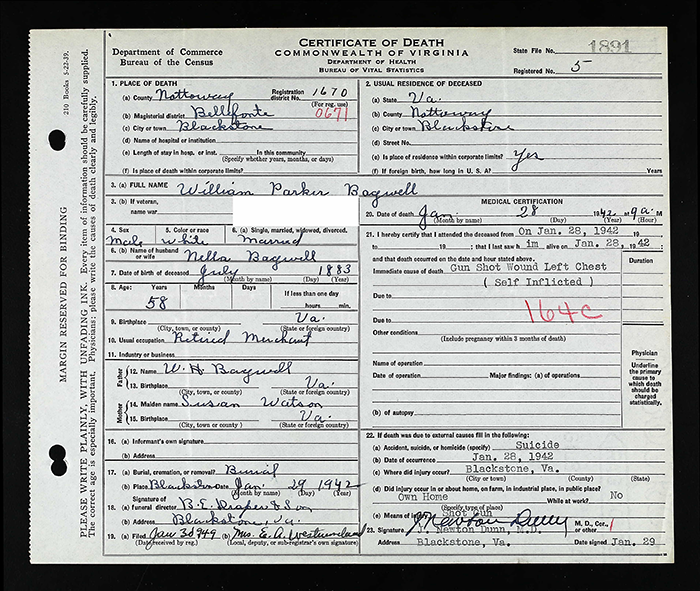 CERTIFICATE OF DEATH
COMMONWEALTH OF VIRGINIA
DEPARTMENT OF HEALTH
BUREAU OF VITAL STATISTICS
Department of Commerce
Bureau of the Census
State File No. 1891
Registered No. 5
210 Books 5-22-39.
MARGIN RESERVED FOR BINDING
PLEASE WRITE PLAINLY, WITH UNFADING INK. Every item of information should be carefully supplied.
The correct age is especially important. Physicians: please write the causes of death clearly and legibly.
1. PLACE OF DEATH
(a) County Nottoway Registration district No. 1670
(For reg. use)
(b) Magisterial district Bellefonte 0671
(c) City or town Blackstone
(d) Name of hospital or institution
(e) Length of stay in hosp. or inst. In this community
(Specify whether years, months, or days)
(f) Is place of death within corporate limits?
2. USUAL RESIDENCE OF DECEASED
(a) State Va.
(b) County Nottoway
(c) City or town Blackstone
(d) Street No.
(e) Is place of residence within corporate limits? Yes
(f) If foreign birth, how long in U. S. A.? Years
3. (a) FULL NAME William Parker Bagwell
3. (b) If veteran,
name war
4. Sex 5. Color or race 6. (a) Single, married, widowed, divorced.
Male White Married
6. (b) Name of husband
or wife Nella Bagwell
7. Date of birth of deceased July 1883
(Month by name) (Day) (Year)
8. Age: Years Months Days If less than one day
58 hours min.
9. Birthplace Va.
(City, town, or county) (State or foreign country)
10. Usual occupation Retired Merchant
11. Industry or business
Father
12. Name W. H. Bagwell
13. Birthplace Va.
(City, town, or county) (State or foreign country)
Mother
14. Maiden name Susan Watson
15. Birthplace Va.
(City, town, or county) (State or foreign country)
16. (a) Informant's own signature
(b) Address
17. (a) Burial, cremation, or removal? Burial
(b) Place Blackstone Date Jan. 29 1942
(Month by name) (Day) (Year)
18. (a) Signature of funeral director B. E. Draper & Son
(b) Address Blackstone, Va.
19. (a) Filed Jan 30 1942 (b) Mrs. E. A. Westmoreland
(Date received by reg.) (Deputy, or sub-registrar's own signature)
MEDICAL CERTIFICATION
20. Date of death Jan. 28 1942 at 9 a. M
(Month by name) (Day) (Year) (Hour)
21. I hereby certify that I attended the deceased from On Jan. 28, 1942 19
to 19 ; that I last saw h im alive on Jan. 28, 1942
and that death occurred on the date and hour stated above. Duration
Immediate cause of death Gun Shot Wound Left Chest
( Self Inflicted )
Due to 164c
Due to
Other conditions
(Include pregnancy within 3 months of death)
Name of operation
Date of operation Major findings: (a) of operations
(b) of autopsy
Physician
Underline
the primary
cause to
which death
should be
charged
statistically.
22. If death was due to external causes fill in the following:
(a) Accident, suicide, or homicide (specify) Suicide
(b) Date of occurrence Jan. 28, 1942
(c) Where did injury occur? Blackstone, Va.
(City or town) (County) (State)
(d) Did injury occur in or about home, on farm, in industrial place, in public place?
Own Home While at work? No
(Specify type of place)
(e) Means of injury Shot Gun
23. Signature J. Newton Dunn M. D., Cor. 1
J. Newton Dunn, M.D. or other
Address Blackstone, Va. Date signed Jan. 29